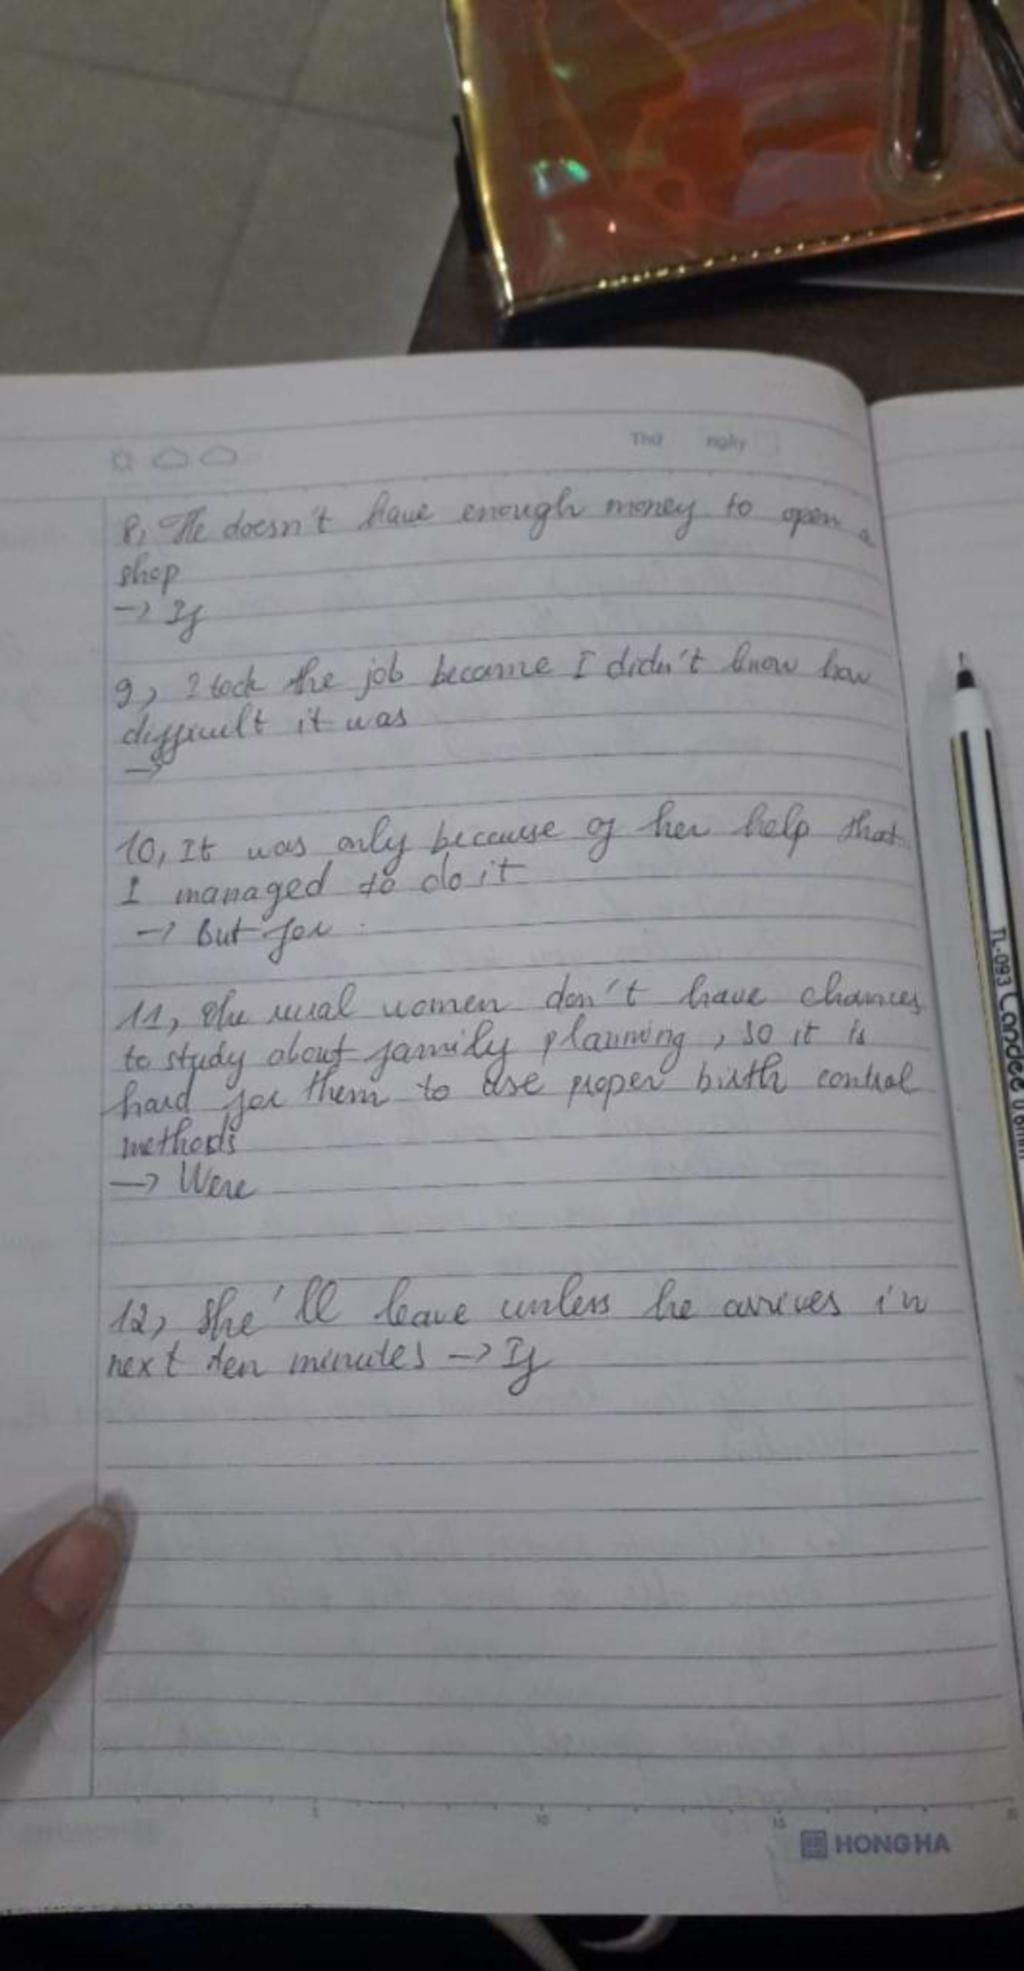 Thứ ngày
8, He doesn't have enough money to open a
shop
→ If
9, I took the job because I didn't know how
difficult it was
→
10, It was only because of her help that
I managed to do it
→ But for
11, The rural women don't have chances
to study about family planning, so it is
hard for them to use proper birth control
methods
→ Were
12, She'll leave unless he arrives in
next ten minutes → If
5 10 15
HONG HA
TL-093 Candee 0.6mm